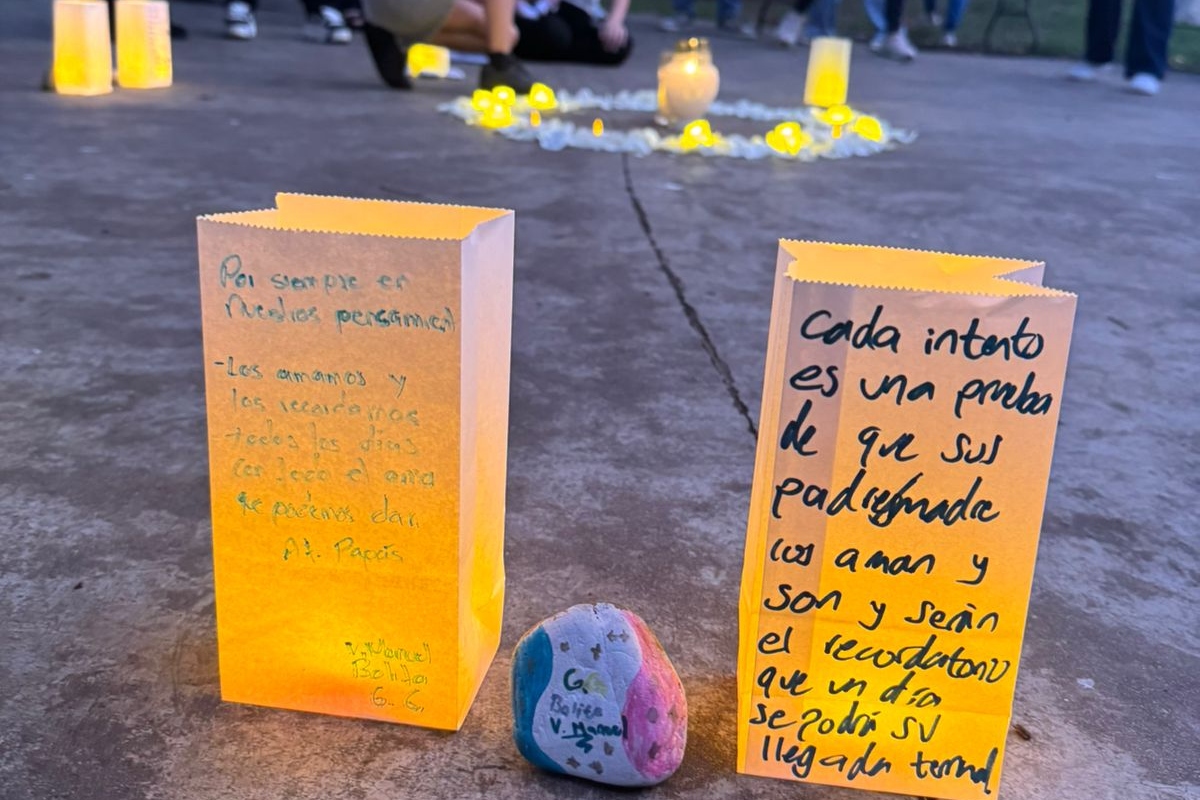 Por siempre en
Nuestros pensamient
-Los amamos y
los recordamos
todos los días
con todo el amor
que podemos dar.
At. Papás
V. Manuel
Bolita
G. G.
G.
Bolita
V. Manuel
G
Cada intento
es una prueba
de que sus
padres/madre
los aman y
son y serán
el recordatorio
que un día
se podrá su
llegada termal